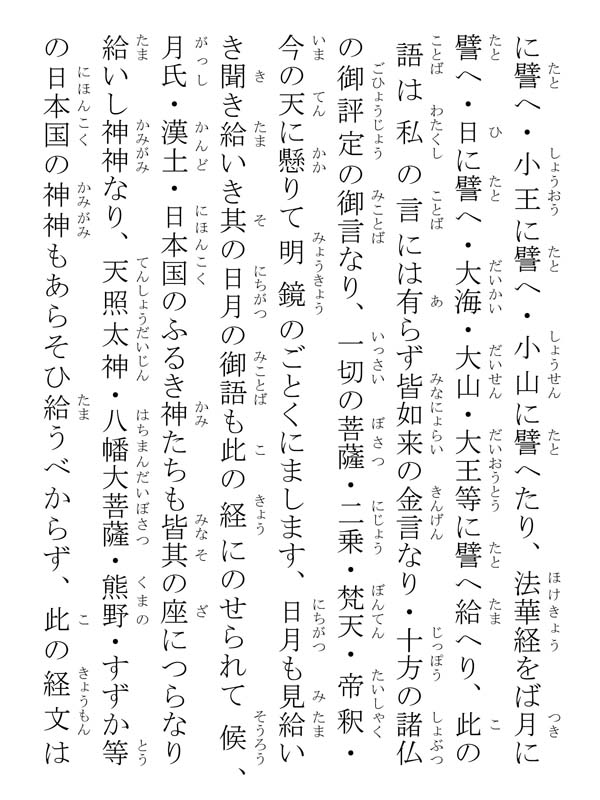 に譬へ・小王に譬へ・小山に譬へたり、法華経をば月に
譬へ・日に譬へ・大海・大山・大王等に譬へ給へり、此の
語は私の言には有らず皆如来の金言なり・十方の諸仏
の御評定の御言なり、一切の菩薩・二乗・梵天・帝釈・
今の天に懸りて明鏡のごとくにまします、日月も見給い
き聞き給いき其の日月の御語も此の経にのせられて候、
月氏・漢土・日本国のふるき神たちも皆其の座につらなり
給いし神神なり、天照太神・八幡大菩薩・熊野・すずか等
の日本国の神神もあらそひ給うべからず、此の経文は